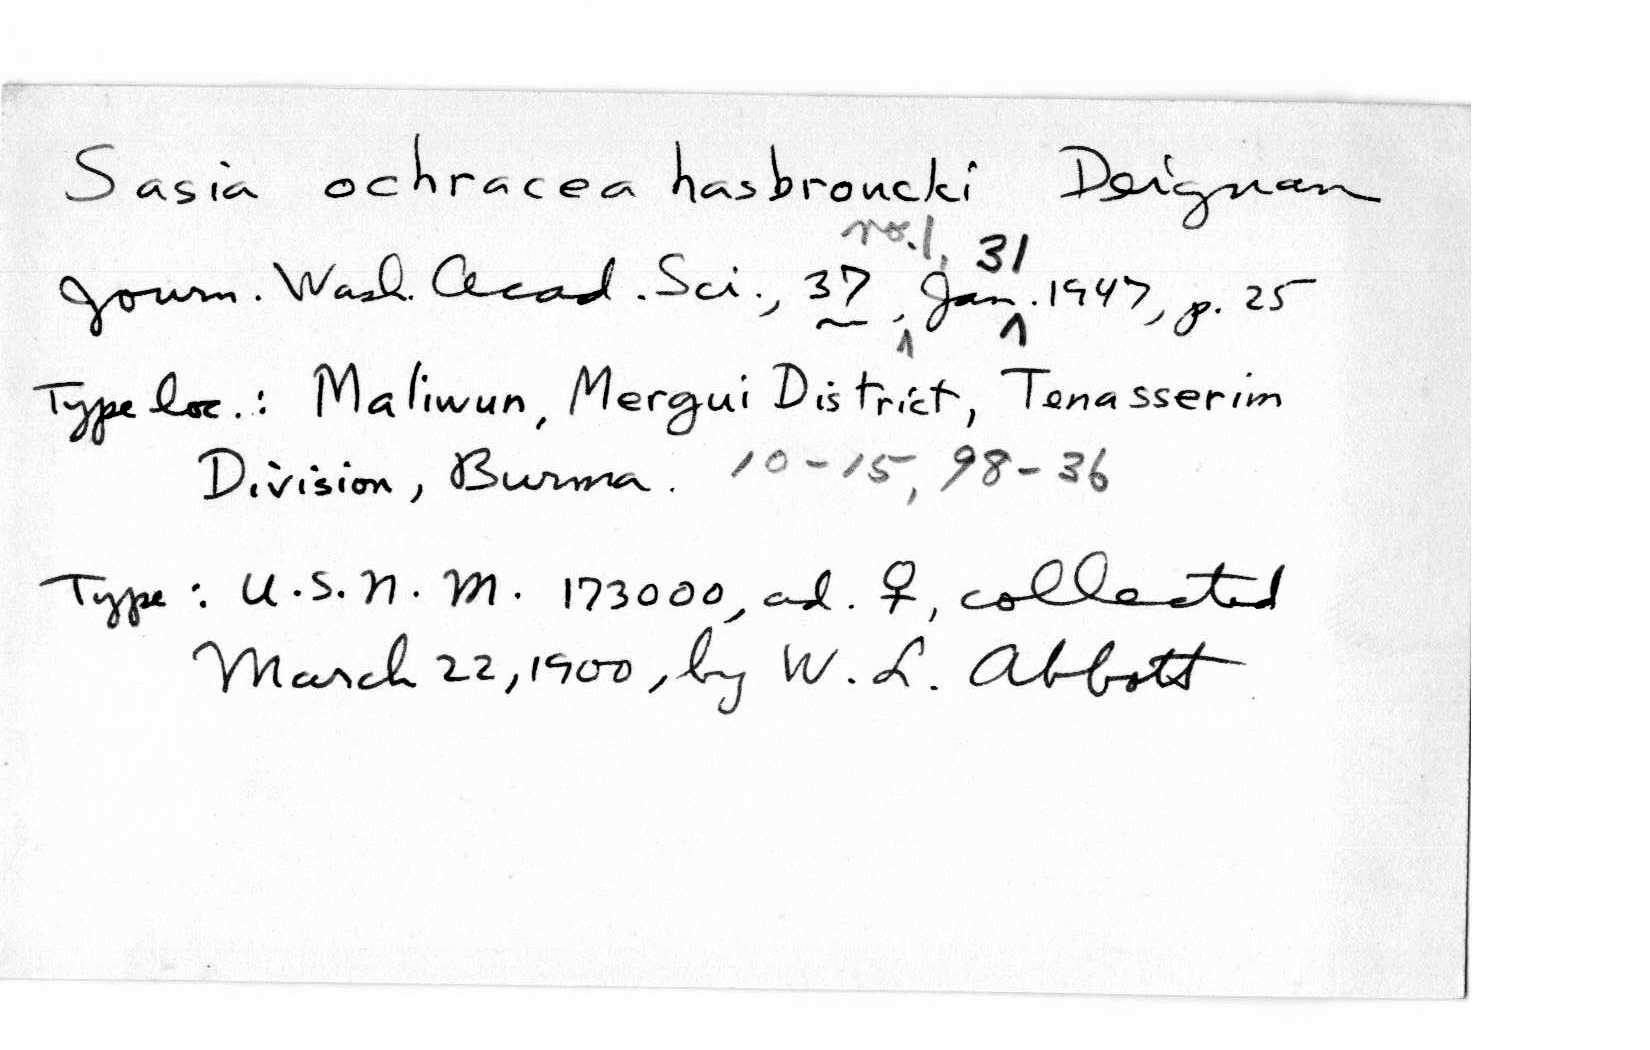 Sasia ochracea hasbroucki Deignan
Journ. Wash. Acad. Sci., 37, no. 1, Jan. 31 1947, p. 25
Type loc.: Maliwun, Mergui District, Tenasserim
Division, Burma. 10-15, 98-36
Type: U.S.N.M. 173000, ad. ♀, collected
March 22, 1900, by W. L. Abbott